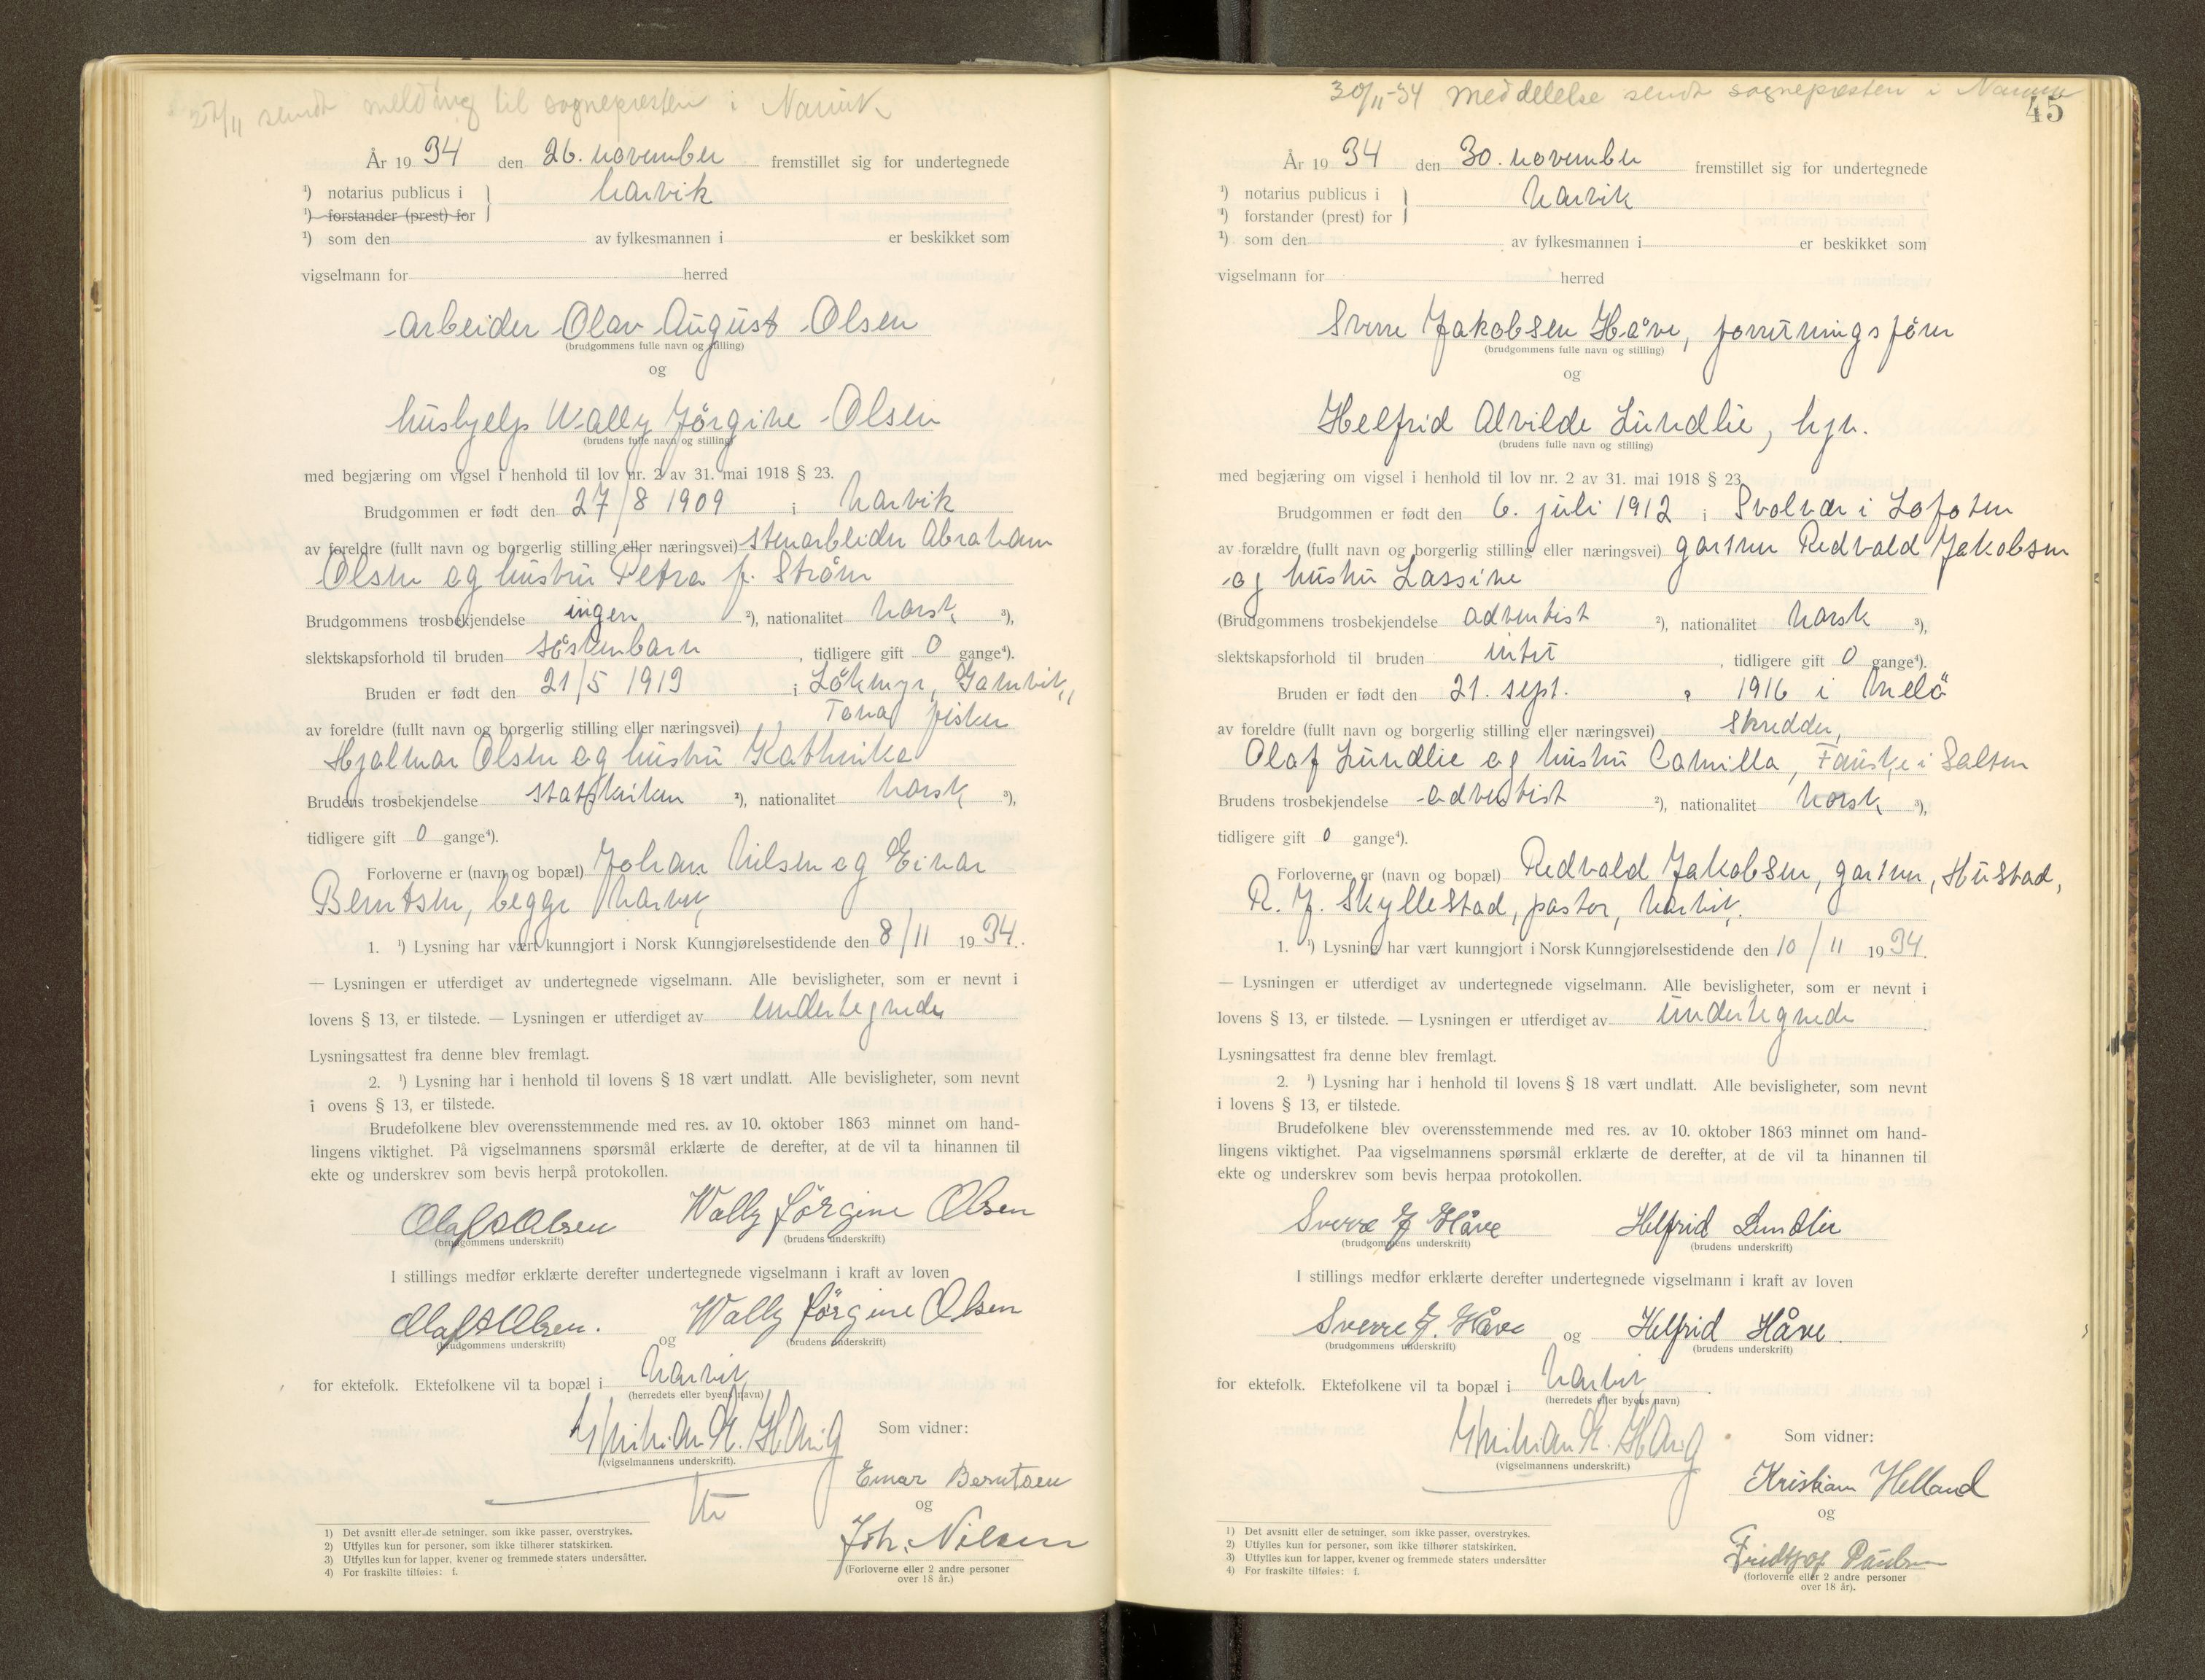 27/11 sendt melding til sognepresten i Narvik
År 1934 den 26. november fremstillet sig for undertegnede
¹) notarius publicus i } Narvik
¹) forstander (prest) for
¹) som den av fylkesmannen i er beskikket som
vigselmann for herred
arbeider Olav August Olsen
(brudgommens fulle navn og stilling)
og
hushjelp Wally Jörgine Olsen
(brudens fulle navn og stilling)
med begjæring om vigsel i henhold til lov nr. 2 av 31. mai 1918 § 23.
Brudgommen er født den 27/8 1909 i Narvik
av foreldre (fullt navn og borgerlig stilling eller næringsvei) stenarbeider Abraham
Olsen og hustru Petra f. Ström
Brudgommens trosbekjendelse ingen ²), nationalitet norsk ³),
slektskapsforhold til bruden söskenbarn, tidligere gift 0 gange⁴).
Bruden er født den 21/5 1913 i Lökmyr, Gamvik,
av foreldre (fullt navn og borgerlig stilling eller næringsvei) Tana fisker
Hjalmar Olsen og hustru Kathrike
Brudens trosbekjendelse statskirken ²), nationalitet norsk ³),
tidligere gift 0 gange⁴).
Forloverne er (navn og bopæl) Johan Nilsen og Einar
Berntsen, begge Narvik
1. ¹) Lysning har vært kunngjort i Norsk Kunngjørelsestidende den 8/11 1934.
— Lysningen er utferdiget av undertegnede vigselmann. Alle bevisligheter, som er nevnt i
lovens § 13, er tilstede. — Lysningen er utferdiget av undertegnede
Lysningsattest fra denne blev fremlagt.
2. ¹) Lysning har i henhold til lovens § 18 vært undlatt. Alle bevisligheter, som nevnt
i ovens § 13, er tilstede.
Brudefolkene blev overensstemmende med res. av 10. oktober 1863 minnet om hand-
lingens viktighet. På vigselmannens spørsmål erklærte de derefter, at de vil ta hinannen til
ekte og underskrev som bevis herpå protokollen.
Olaf A Olsen Wally Jörgine Olsen
(brudgommens underskrift) (brudens underskrift)
I stillings medfør erklærte derefter undertegnede vigselmann i kraft av loven
Olaf A Olsen. og Wally Jörgine Olsen
(brudgommens underskrift) (brudens underskrift)
for ektefolk. Ektefolkene vil ta bopæl i Narvik
(herredets eller byens navn)
Som vidner:
(vigselmannens underskrift).
Einar Berntsen
og
Joh. Nilsen
(Forloverne eller 2 andre personer
over 18 år.)
1) Det avsnitt eller de setninger, som ikke passer, overstrykes.
2) Utfylles kun for personer, som ikke tilhører statskirken.
3) Utfylles kun for lapper, kvener og fremmede staters undersåtter.
4) For fraskilte tilføies: f.
30/11-34 Meddelelse sendt sognepresten i Narvik
45
År 1934 den 30. november fremstillet sig for undertegnede
¹) notarius publicus i } Narvik
¹) forstander (prest) for
¹) som den av fylkesmannen i er beskikket som
vigselmann for herred
Sverre Jakobsen Håve, forretningsförer
(brudgommens fulle navn og stilling)
og
Helfrid Alvilde Lundlie, hjv.
(brudens fulle navn og stilling)
med begjæring om vigsel i henhold til lov nr. 2 av 31. mai 1918 § 23.
Brudgommen er født den 6. juli 1912 i Svolvær i Lofoten
av forældre (fullt navn og borgerlig stilling eller næringsvei) gartner Redvald Jakobsen
og hustru Lassine
(Brudgommens trosbekjendelse adventist ²), nationalitet norsk ³),
slektskapsforhold til bruden intet, tidligere gift 0 gange⁴).
Bruden er født den 21. sept. 1916 i Melö
av foreldre (fullt navn og borgerlig stilling eller næringsvei) skredder,
Olaf Lundlie og hustru Camilla, Fauske i Salten
Brudens trosbekjendelse adventist ²), nationalitet norsk ³),
tidligere gift 0 gange⁴).
Forloverne er (navn og bopæl) Redvald Jakobsen, gartner, Hustad,
R. J. Skyllestad, pastor, Narvik.
1. ¹) Lysning har vært kunngjort i Norsk Kunngjørelsestidende den 10/11 1934.
— Lysningen er utferdiget av undertegnede vigselmann. Alle bevisligheter, som er nevnt i
lovens § 13, er tilstede. — Lysningen er utferdiget av undertegnede
Lysningsattest fra denne blev fremlagt.
2. ¹) Lysning har i henhold til lovens § 18 vært undlatt. Alle bevisligheter, som nevnt
i lovens § 13, er tilstede.
Brudefolkene blev overensstemmende med res. av 10. oktober 1863 minnet om hand-
lingens viktighet. Paa vigselmannens spørsmål erklærte de derefter, at de vil ta hinannen til
ekte og underskrev som bevis herpaa protokollen.
Sverre J Håve Helfrid Lundlie
(brudgommens underskrift) (brudens underskrift)
I stillings medfør erklærte derefter undertegnede vigselmann i kraft av loven
Sverre J. Håve og Helfrid Håve.
(brudgommens underskrift) (brudens underskrift)
for ektefolk. Ektefolkene vil ta bopæl i Narvik.
(herredets eller byens navn)
Som vidner:
(vigselmannens underskrift.)
Kristian Helland
og
Fridtjof Paulsen
(forloverne eller 2 andre personer
over 18 år).
1) Det avsnitt eller de setninger, som ikke passer, overstrykes.
2) Utfylles kun for personer, som ikke tilhører statskirken.
3) Utfylles kun for lapper, kvener og fremmede staters undersåtter
4) For fraskilte tilføies: f.